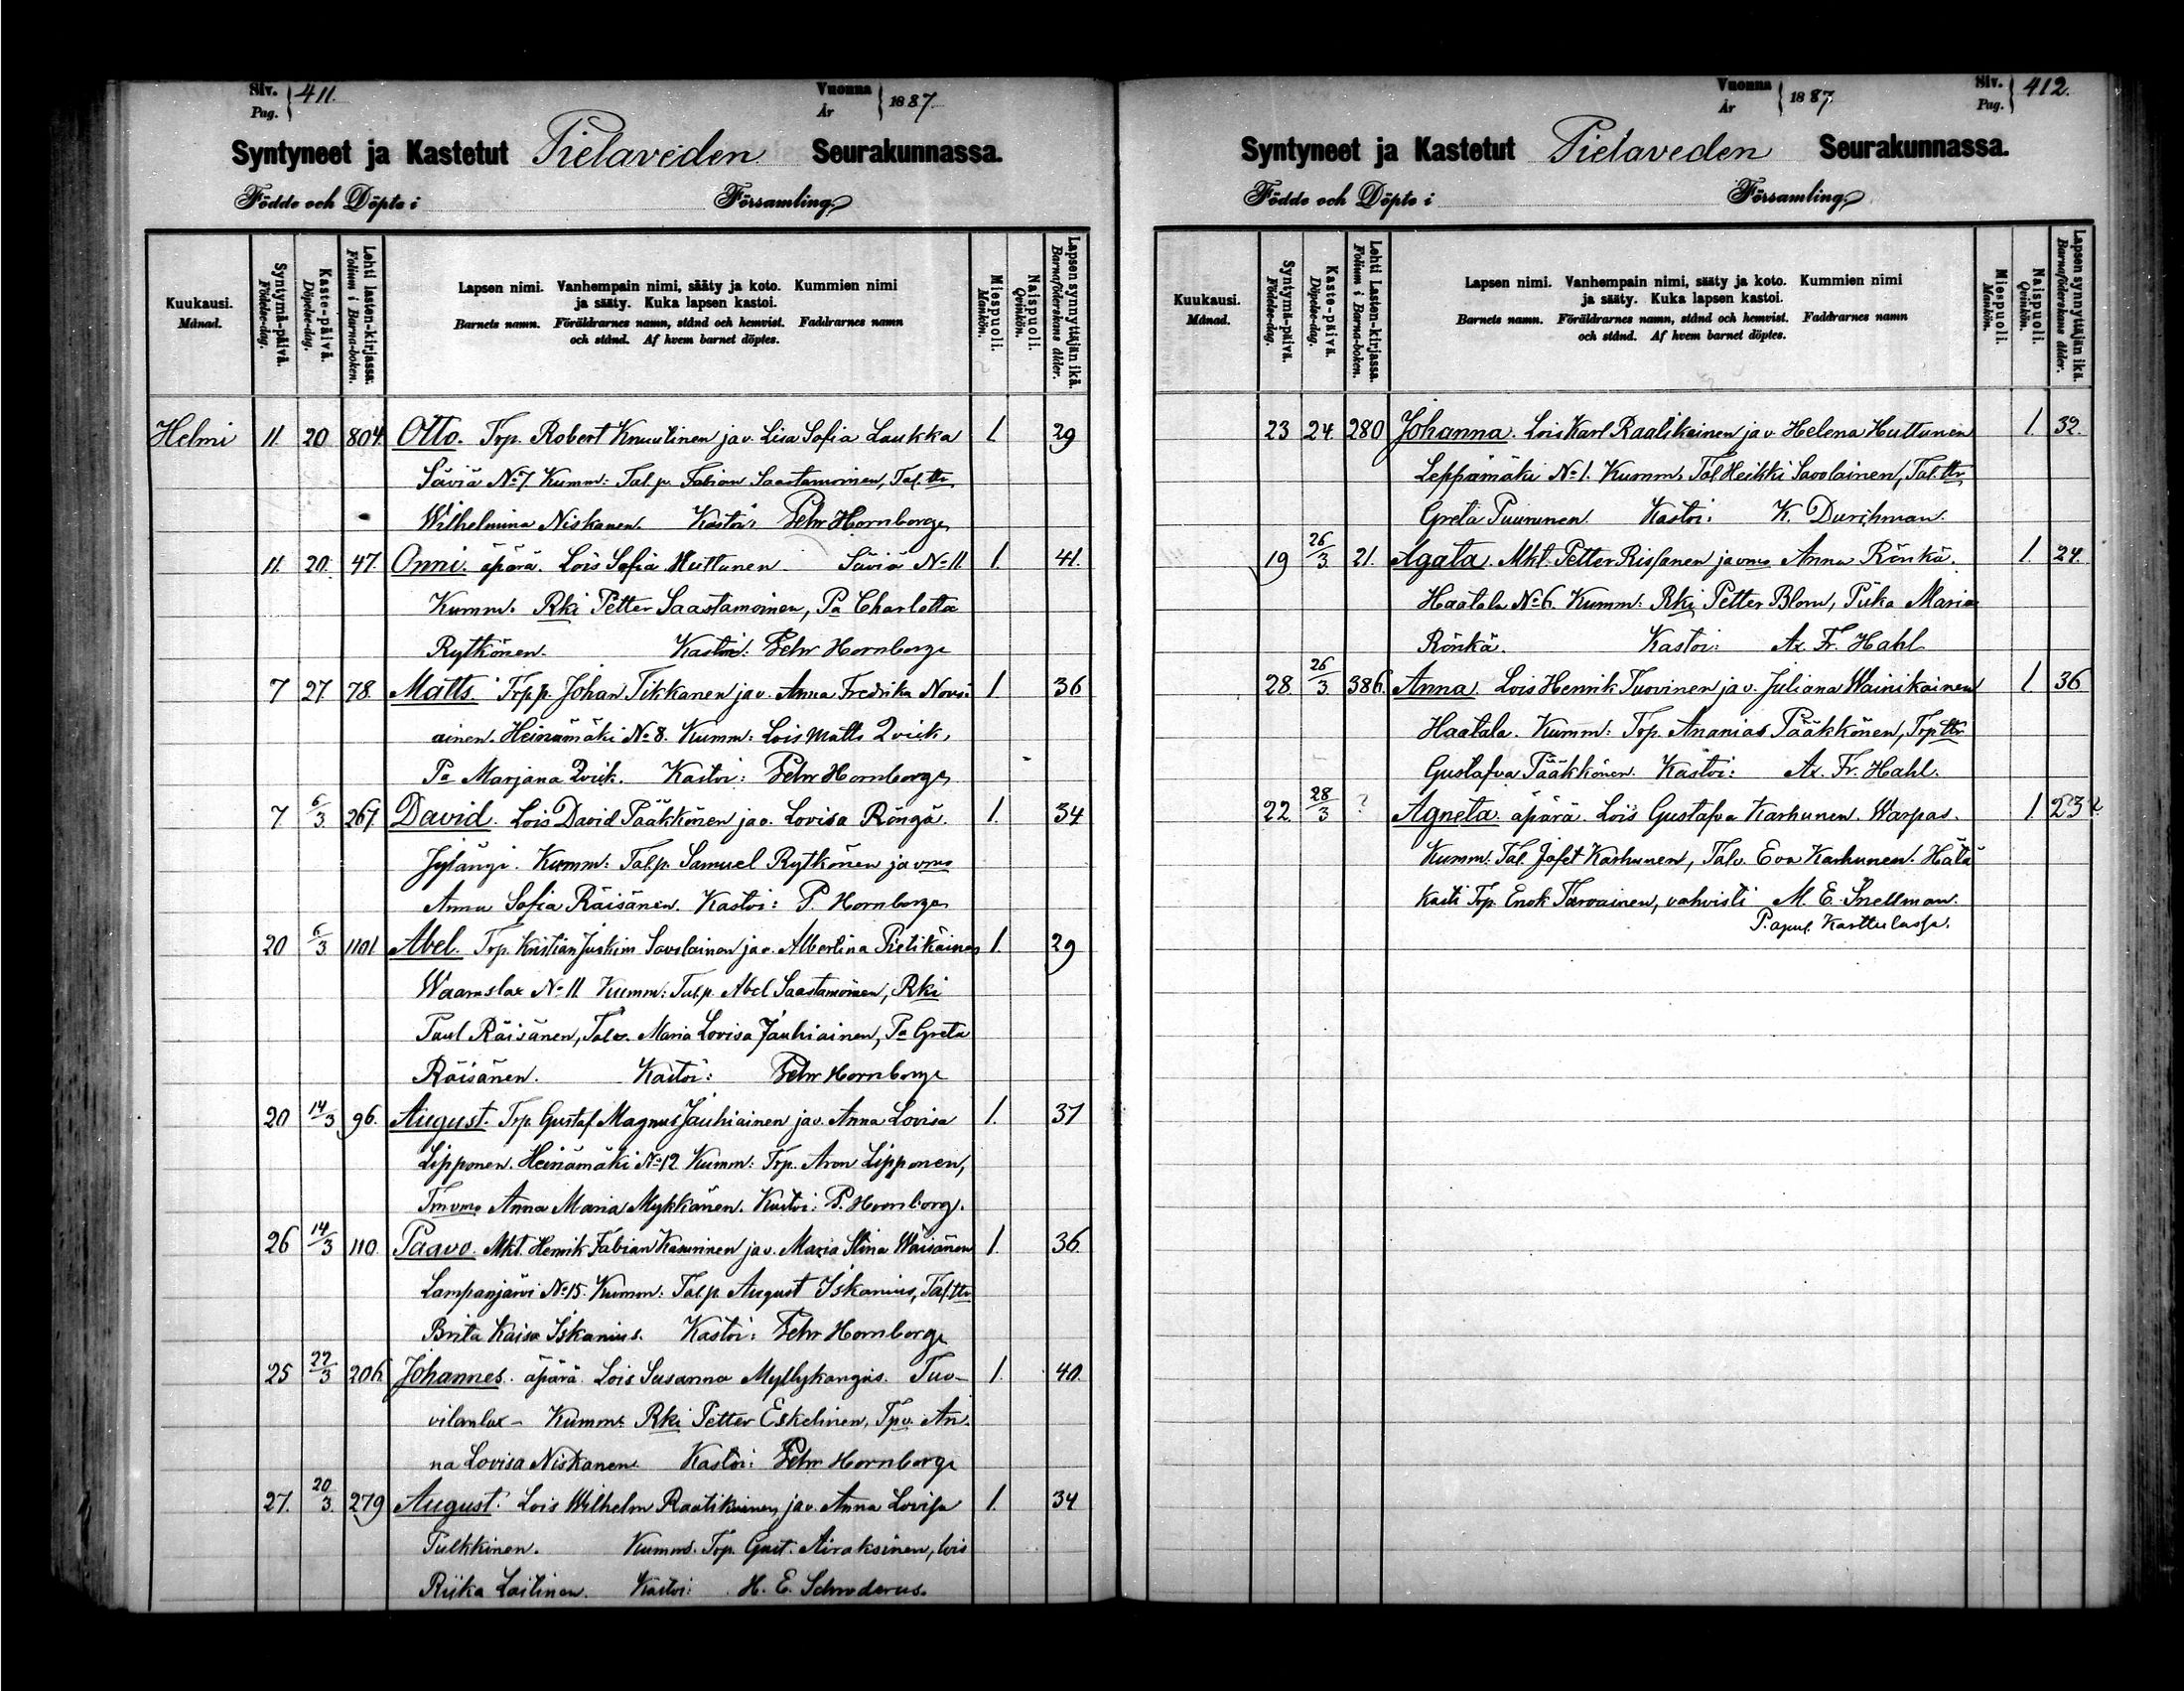 Siv. Pag. 411.
Vuonna År 1887.
Syntyneet ja Kastetut Pielaveden Seurakunnassa.
Födde och Döpte i Församling
Kuukausi. Månad.
Syntymä-päivä. Födelse-dag.
Kaste-päivä. Döpelse-dag.
Lehti lasten-kirjassa. Folium i Barna-boken.
Lapsen nimi. Vanhempain nimi, sääty ja koto. Kummien nimi
ja sääty. Kuka lapsen kastoi.
Barnets namn. Föräldrarnes namn, stånd och hemvist. Faddrarnes namn
och stånd. Af hvem barnet döptes.
Miespuoli. Mankön.
Naispuoli. Qvinkön.
Lapsen synnyttäjän ikä. Barnaföderskans ålder.
Helmi 11. 20 804. Otto. Trp. Robert Knuutinen ja v. Lisa Sofia Laukka 1 29
Säviä No 7 Kumm: Tal.p. Fabian Saastamoinen, Tal.ttr
Wilhelmina Niskanen. Kastoi: Pehr Hornborg
11. 20. 47. Onni. äpärä. Lois Sofia Huttunen Säviä No 11 1. 41.
Kumm. Rki Petter Saastamoinen, Pa Charlotta
Rytkönen. Kastoi: Pehr Hornborg
7 27. 78. Matts. Trp.p. Johan Tikkanen ja v. Anna Fredrika Nousi- 1. 36
ainen. Heinämäki No 8. Kumm: Lois Matts Qvick,
Pa Marjana Qvick. Kastoi: Pehr Hornborg
7. 6/3 267 David. Lois David Pääkkönen ja v. Lovisa Röngä. 1. 34
Jylängi. Kumm: Tal.p. Samuel Rytkönen ja vmo
Anna Sofia Räisänen. Kastoi: P. Hornborg
20 6/3 1101. Abel. Trp. Kristian Juskim Savolainen ja v. Albertina Pietikäinen 1. 29
Waarnslax No 11 Kumm: Tal.p. Abel Saastamoinen, Rki
Paul Räisänen, Tal.v. Maria Lovisa Jauhiainen, Pa Greta
Räisänen. Kastoi: Pehr Hornborg
20 14/3 96. August. Trp. Gustaf Magnus Jauhiainen ja v. Anna Lovisa 1. 37
Lipponen. Heinämäki No 12 Kumm: Trp. Aron Lipponen,
Anna Maria Mykkänen. Kastoi: P. Hornborg.
26 14/3 110. Paavo. Mkt. Henrik Fabian Kasurinen ja v. Maria Stina Wäisänen 1. 36.
Lampanjärvi No 15. Kumm: Tal.p. August Iskanius, Tal.ttr
Brita Kaisa Iskanius. Kastoi: Pehr Hornborg
25 22/3 206 Johannes. äpärä. Lois Susanna Myllykangas. Tuo- 1. 40.
vilanlax - Kumm: Rki Petter Eskelinen, Tpv. An-
na Lovisa Niskanen. Kastoi: Pehr Hornborg
27. 20/3. 279 August. Lois Wilhelm Raatikainen ja v. Anna Lovisa 1. 34
Pulkkinen. Kumm. Trp. Gust. Airaksinen, lois
Riika Laitinen. Kastoi: H. E. Schroderus.
Vuonna År 1887
Siv. Pag. 412.
Syntyneet ja Kastetut Pielaveden Seurakunnassa.
Födde och Döpte i Församling
Kuukausi. Månad.
Syntymä-päivä. Födelse-dag.
Kaste-päivä. Döpelse-dag.
Lehti Lasten-kirjassa. Folium i Barna-boken.
Lapsen nimi. Vanhempain nimi, sääty ja koto. Kummien nimi
ja sääty. Kuka lapsen kastoi.
Barnets namn. Föräldrarnes namn, stånd och hemvist. Faddrarnes namn
och stånd. Af hvem barnet döptes.
Miespuoli. Mankön.
Naispuoli. Qvinkön.
Lapsen synnyttäjän ikä. Barnaföderskans ålder.
23 24. 280 Johanna. Lois Karl Raatikainen ja v. Helena Huttunen 1. 32.
Leppämäki No 1. Kumm. Tal. Heikki Savolainen, Tal.ttr
Greta Puurunen. Kastoi: K. Durchman.
19 26/3 21. Agata. Mkt. Petter Rissanen ja vmo Anna Rönkä. 1. 24.
Haatala No 6. Kumm: Rki Petter Blom, Piika Maria
Rönkä. Kastoi: Ax. Fr. Hahl
28. 26/3 386. Anna. Lois Henrik Tuovinen ja v. Juliana Wainikainen 1 36
Haatala. Kumm: Trp. Ananias Pääkkönen, Trp.ttr
Gustafva Pääkkönen. Kastoi: Ax. Fr. Hahl.
22. 28/3 ? Agneta. äpärä. Lois Gustafva Karhunen. Warpas. 1 23?
Kumm. Tal. Jafet Karhunen, Talv. Eva Karhunen. Hätä
Kasti Trp. Enok Tarvainen, vahvisti M. E. Snellman.
P. apul. Karttulassa.